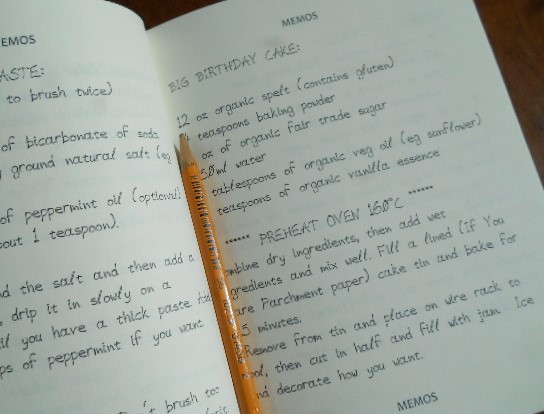 EMOS
ASTE:
to brush twice)
of bicarbonate of soda
ground natural salt (eg
of peppermint oil (optional)
out 1 teaspoon).
the salt and then add a
drip it in slowly on a
you have a thick paste
ps of peppermint if you want
brush to:
MEMOS
BIG BIRTHDAY CAKE:
12 oz organic spelt (contains gluten)
teaspoons baking powder
oz of organic fair trade sugar
50ml water
tablespoons of organic veg oil (eg sunflower)
teaspoons of organic vanilla essence
...... PREHEAT OVEN 160°C ......
mbine dry ingredients, then add wet
gredients and mix well. Fill a lined (if You
are Parchment paper) cake tin and bake for
5 minutes.
Remove from tin and place on wire rack to
ool, then cut in half and fill with jam. Ice
nd decorate how you want.
MEMOS